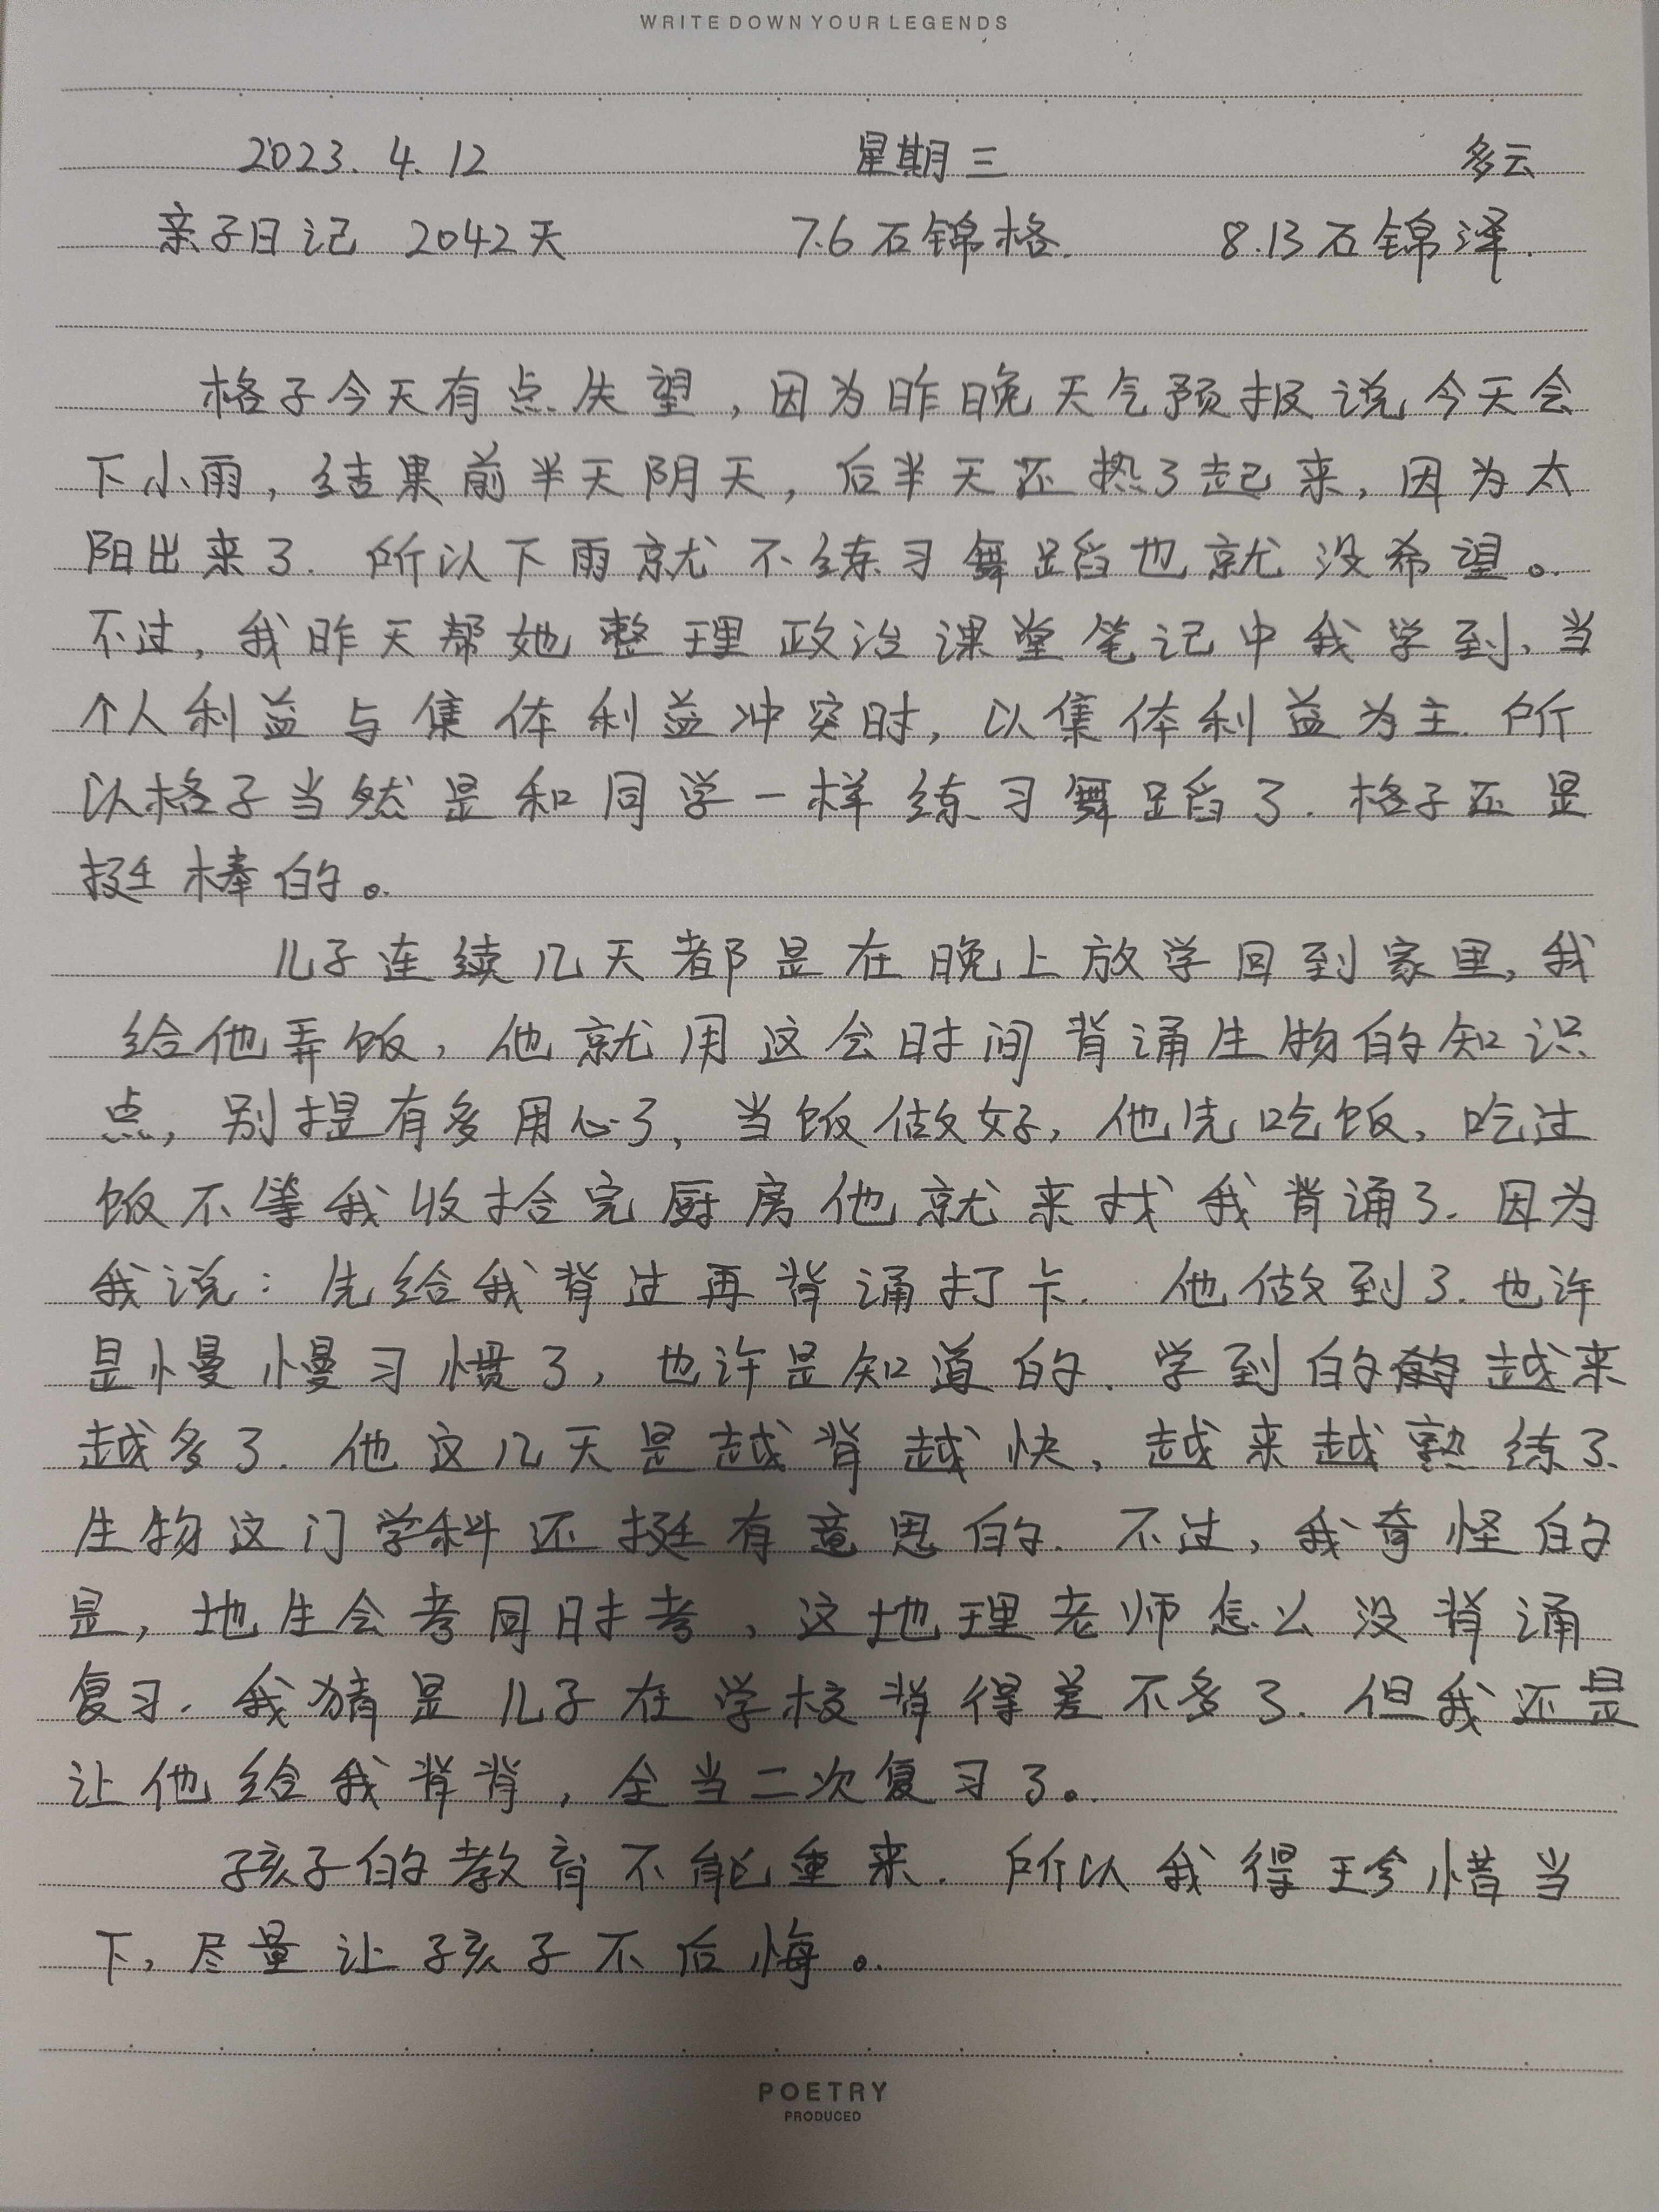 WRITE DOWN YOUR LEGENDS
2023.4.12 星期三 多云
亲子日记 2042天 7.6石锦格. 8.13石锦泽.
格子今天有点失望,因为昨晚天气预报说今天会
下小雨,结果前半天阴天,后半天还热了起来,因为太
阳出来了.所以下雨就不练习舞蹈也就没希望。
不过,我昨天帮她整理政治课堂笔记中我学到,当
个人利益与集体利益冲突时,以集体利益为主.所
以格子当然是和同学一样练习舞蹈了.格子还是
挺棒的。
儿子连续几天都是在晚上放学回到家里,我
给他弄饭,他就用这会时间背诵生物的知识
点,别提有多用心了,当饭做好,他先吃饭,吃过
饭不等我收拾完厨房他就来找我背诵了.因为
我说:先给我背过再背诵打卡.他做到了.也许
是慢慢习惯了,也许是知道的.学到的越来
越多了.他这几天是越背越快,越来越熟练了.
生物这门学科还挺有意思的.不过,我奇怪的
是,地生会考同时考,这地理老师怎么没背诵
复习.我猜是儿子在学校背得差不多了.但我还是
让他给我背背,全当二次复习了。
孩子的教育不能重来.所以我得珍惜当
下,尽量让孩子不后悔。
POETRY
PRODUCED